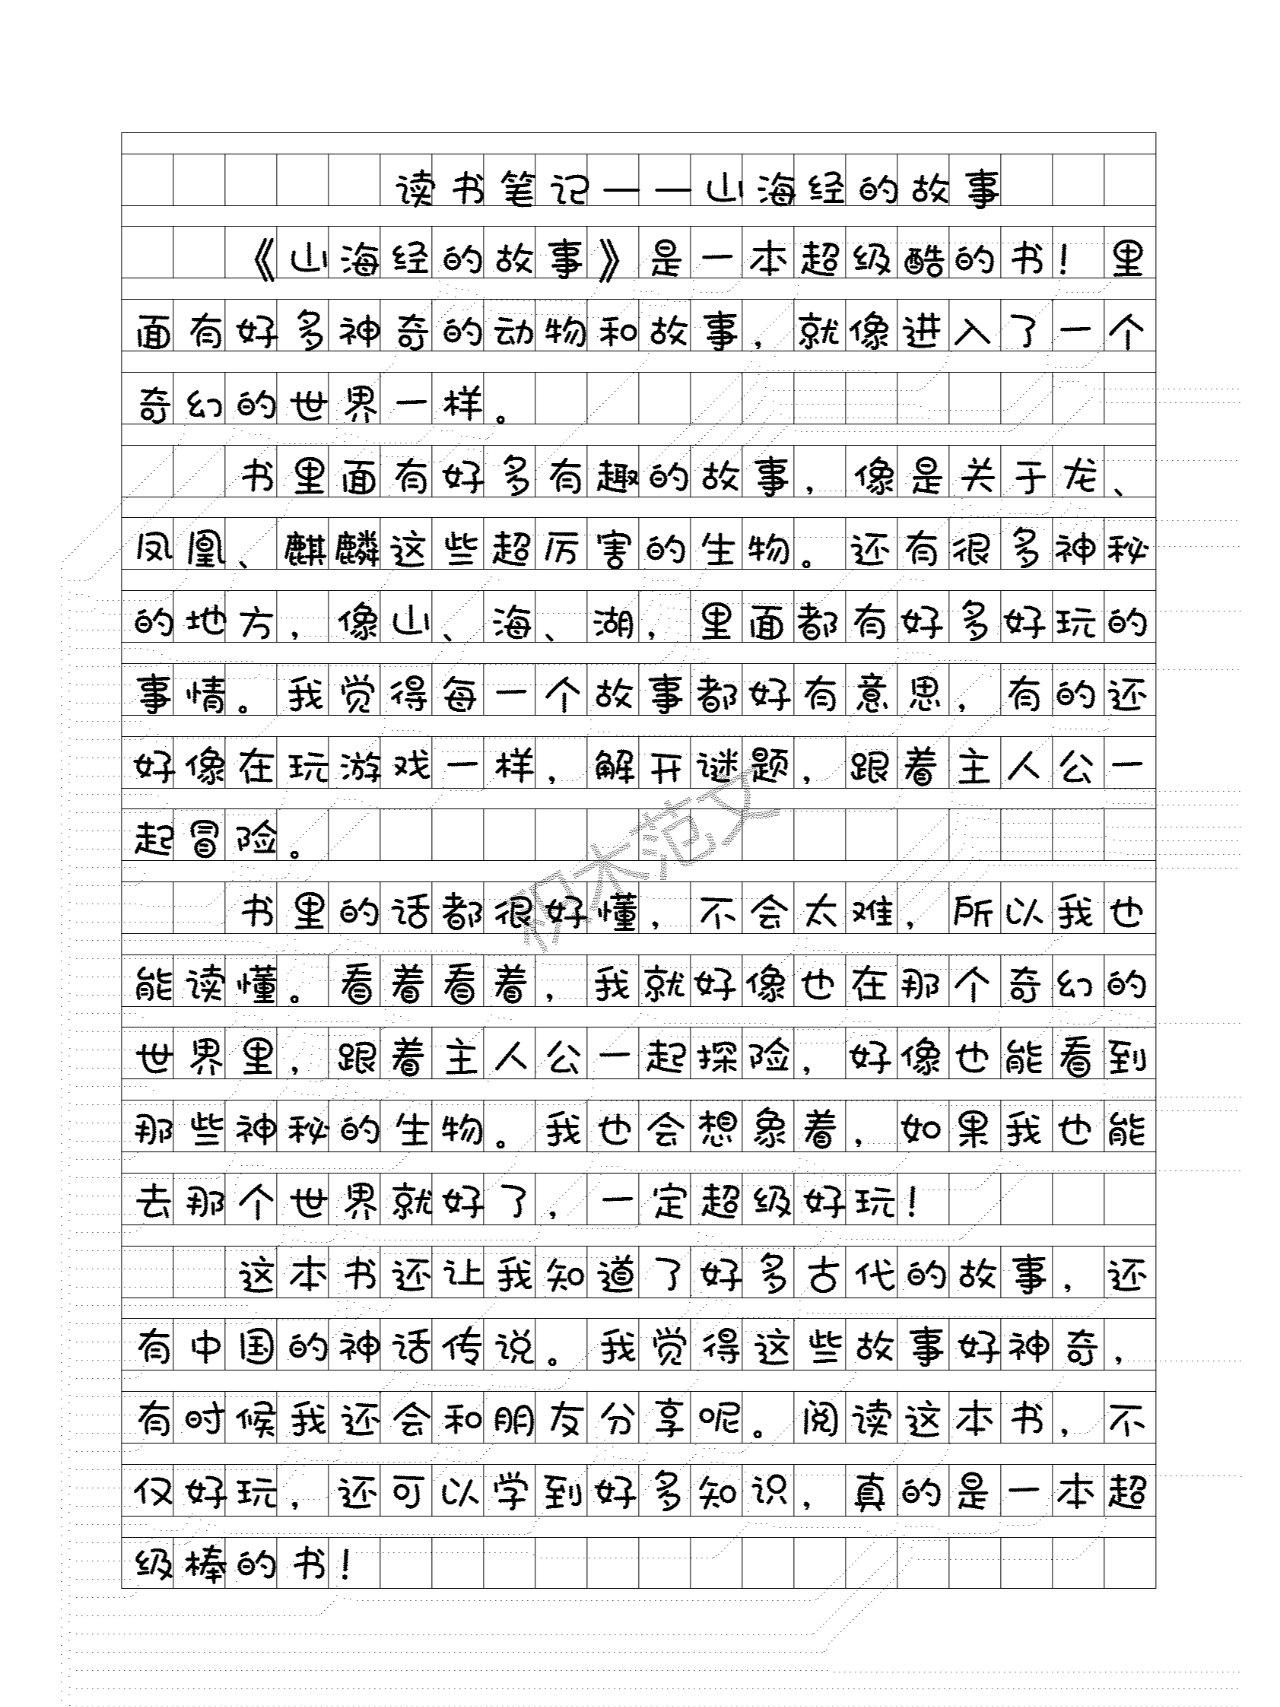 读书笔记——山海经的故事
《山海经的故事》是一本超级酷的书！里
面有好多神奇的动物和故事，就像进入了一个
奇幻的世界一样。
书里面有好多有趣的故事，像是关于龙、
凤凰、麒麟这些超厉害的生物。还有很多神秘
的地方，像山、海、湖，里面都有好多好玩的
事情。我觉得每一个故事都好有意思，有的还
好像在玩游戏一样，解开谜题，跟着主人公一
起冒险。
积木范文
书里的话都很好懂，不会太难，所以我也
能读懂。看着看着，我就好像也在那个奇幻的
世界里，跟着主人公一起探险，好像也能看到
那些神秘的生物。我也会想象着，如果我也能
去那个世界就好了，一定超级好玩！
这本书还让我知道了好多古代的故事，还
有中国的神话传说。我觉得这些故事好神奇，
有时候我还会和朋友分享呢。阅读这本书，不
仅好玩，还可以学到好多知识，真的是一本超
级棒的书！